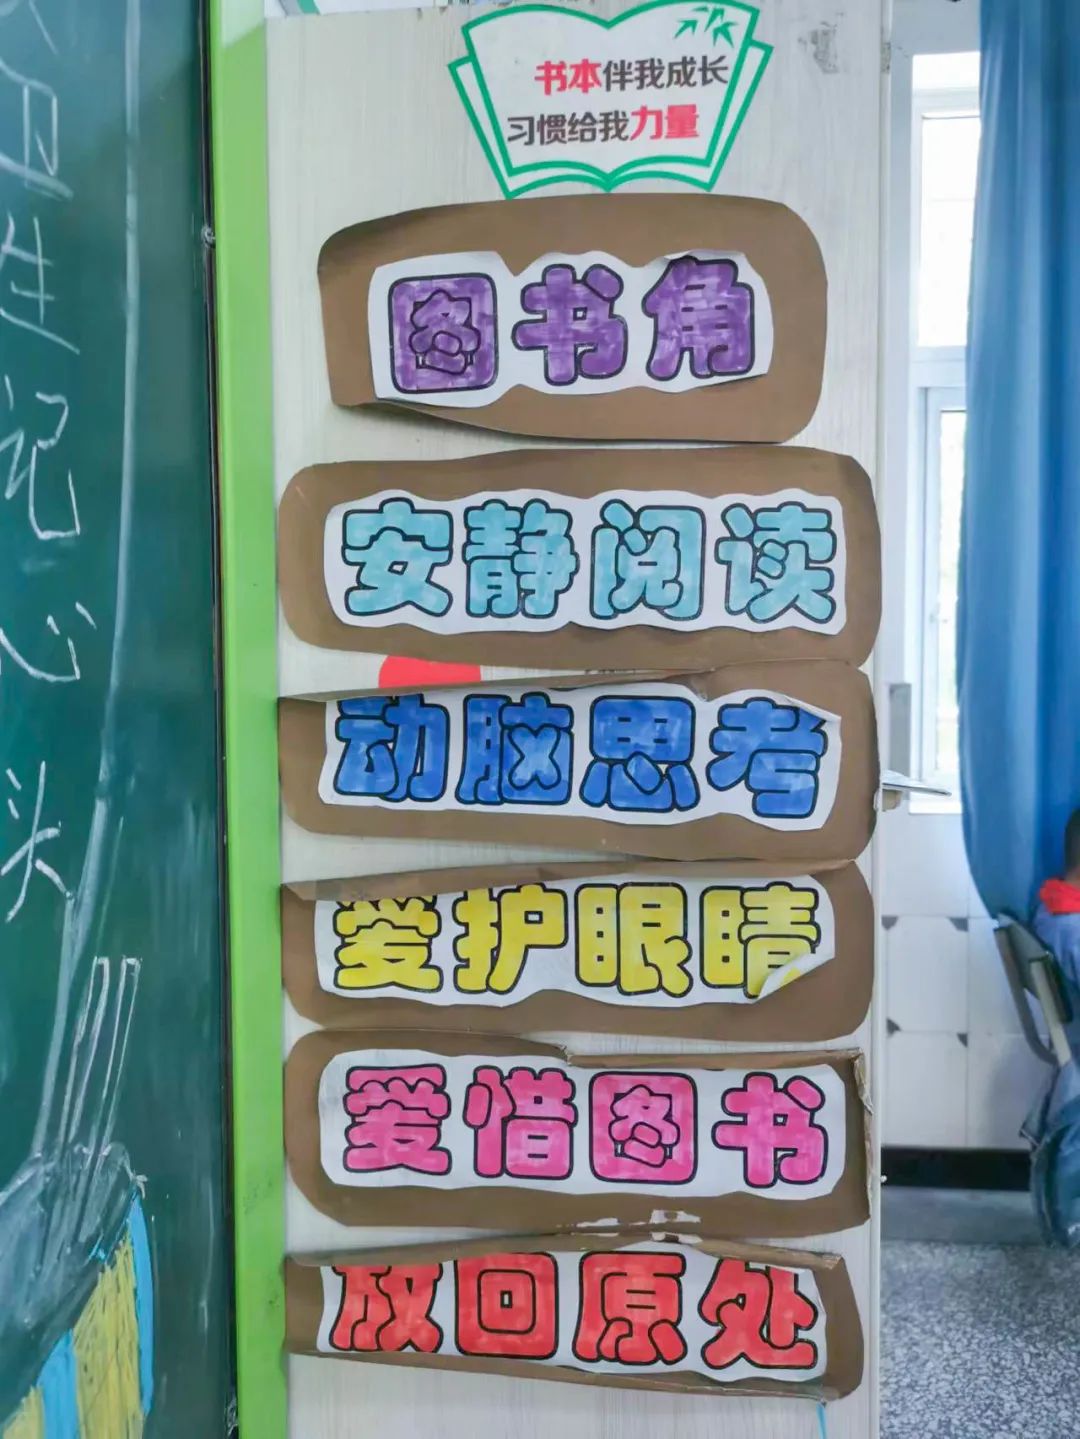 书本伴我成长
习惯给我力量
图书角
安静阅读
动脑思考
爱护眼睛
爱惜图书
放回原处
生记心头